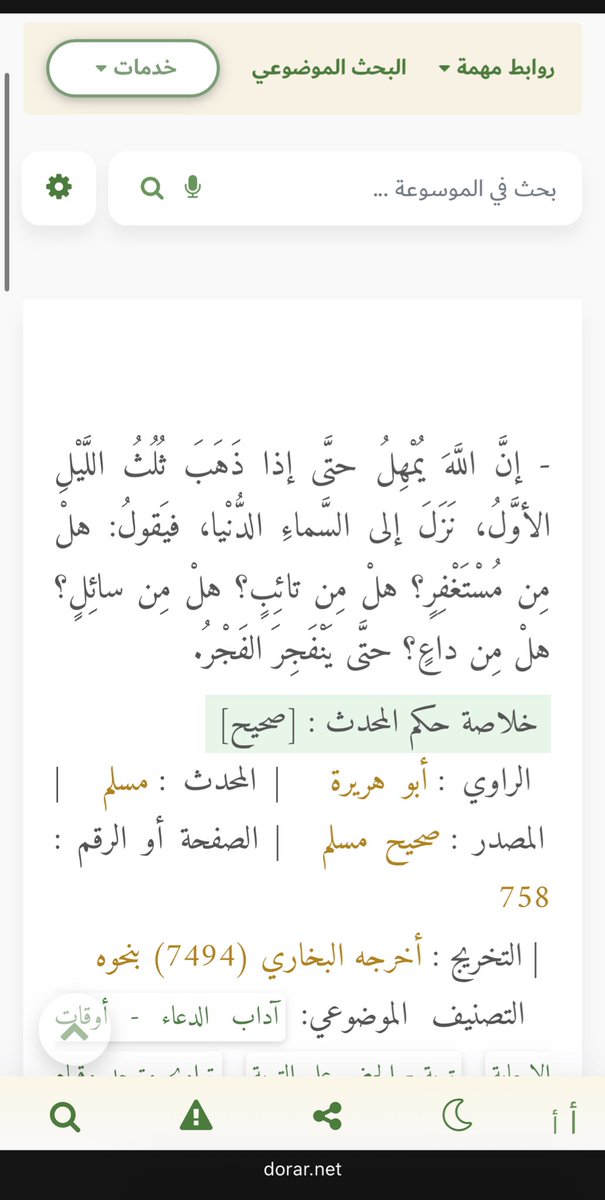 روابط مهمة البحث الموضوعي خدمات
بحث في الموسوعة ...
- إنَّ اللَّهَ يُمْهِلُ حتَّى إذا ذَهَبَ ثُلُثُ اللَّيْلِ
الأوَّلُ، نَزَلَ إلى السَّماءِ الدُّنْيا، فيَقولُ: هلْ
مِن مُسْتَغْفِرٍ؟ هلْ مِن تائِبٍ؟ هلْ مِن سائِلٍ؟
هلْ مِن داعٍ؟ حتَّى يَنْفَجِرَ الفَجْرُ.
خلاصة حكم المحدث : [صحيح]
الراوي : أبو هريرة | المحدث : مسلم |
المصدر : صحيح مسلم | الصفحة أو الرقم :
758
| التخريج : أخرجه البخاري (7494) بنحوه
التصنيف الموضوعي: آداب الدعاء - أوقات
أ أ
dorar.net